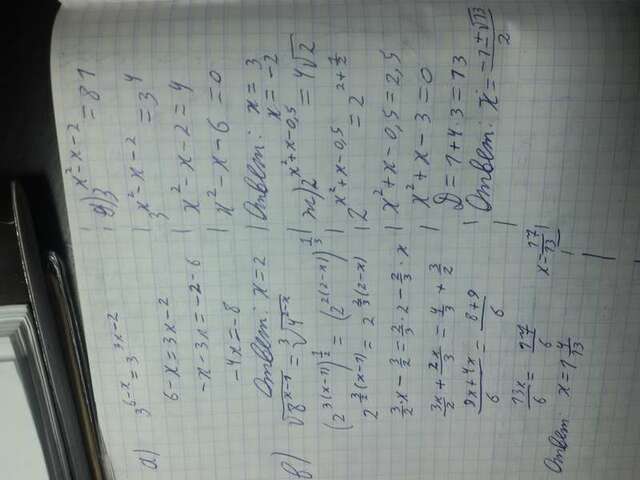 а) 3^{6-x} = 3^{3x-2}
6-x = 3x-2
-x-3x = -2-6
-4x = -8
Ответ: x = 2
в) √8^{x-1} = ∛4^{2-x}
(2^{3(x-1)})^{1/2} = (2^{2(2-x)})^{1/3}
2^{3/2(x-1)} = 2^{2/3(2-x)}
3/2·x - 3/2 = 2/3·2 - 2/3·x
3x/2 + 2x/3 = 4/3 + 3/2
9x+4x/6 = 8+9/6
13x/6 = 17/6
x = 17/13
Ответ: x = 1 4/13
д) 3^{x²-x-2} = 81
3^{x²-x-2} = 3^4
x²-x-2 = 4
x²-x-6 = 0
Ответ: x = 3
x = -2
ж) 2^{x²+x-0,5} = 4√2
2^{x²+x-0,5} = 2^{2+1/2}
x²+x-0,5 = 2,5
x²+x-3 = 0
D = 1+4·3 = 13
Ответ: x = -1±√13/2